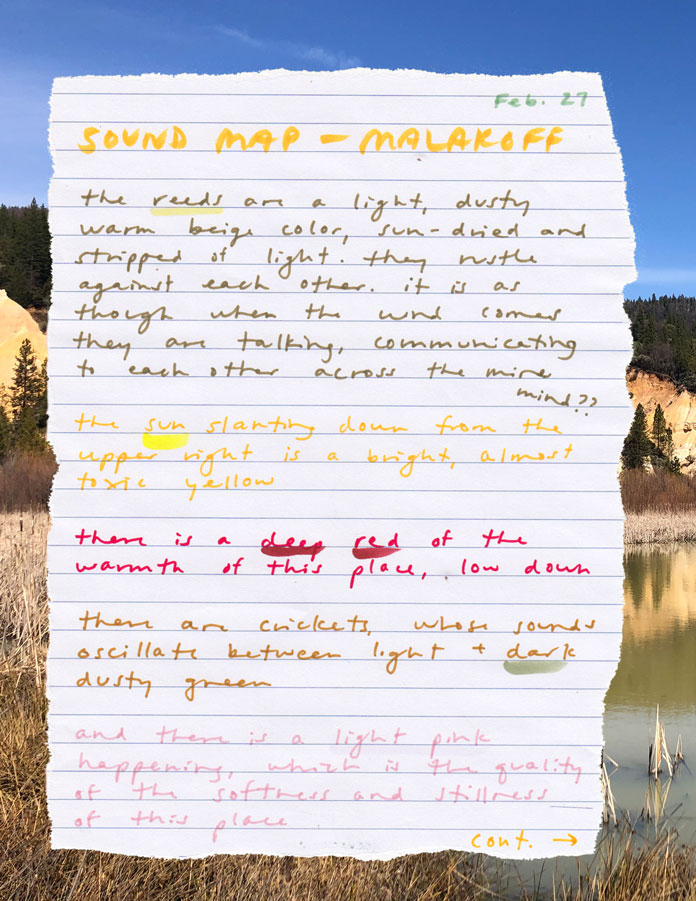 Feb. 27
SOUND MAP - MALAKOFF
the reeds are a light, dusty
warm beige color, sun-dried and
stripped of light. they rustle
against each other. it is as
though when the wind comes
they are talking, communicating
to each other across the mine
mind??
the sun slanting down from the
upper right is a bright, almost
toxic yellow
there is a deep red of the
warmth of this place, low down
there are crickets, whose sounds
oscillate between light + dark
dusty green
and there is a light pink
happening, which is the quality
of the softness and stillness
of this place
cont. →